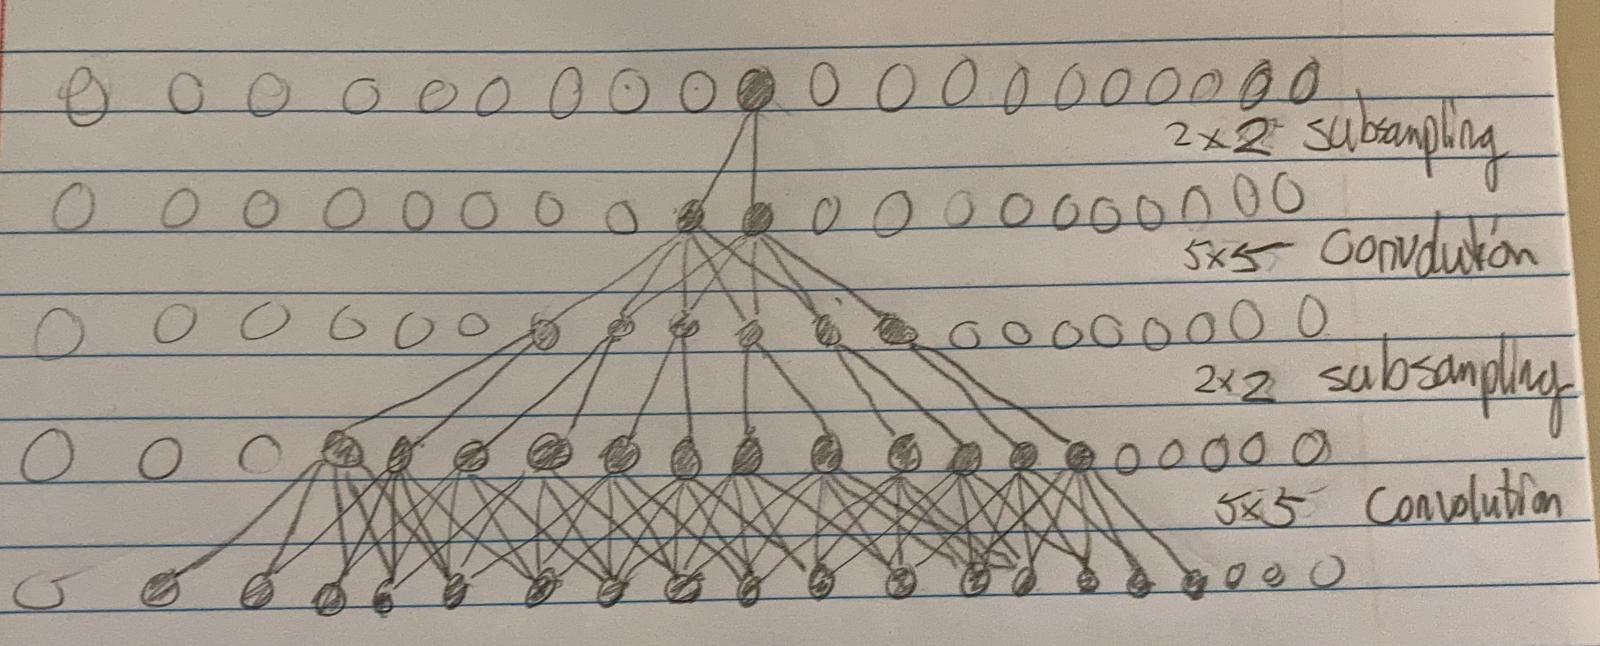 2×2 subsampling
5×5 Convolution
2×2 subsampling
5×5 Convolution